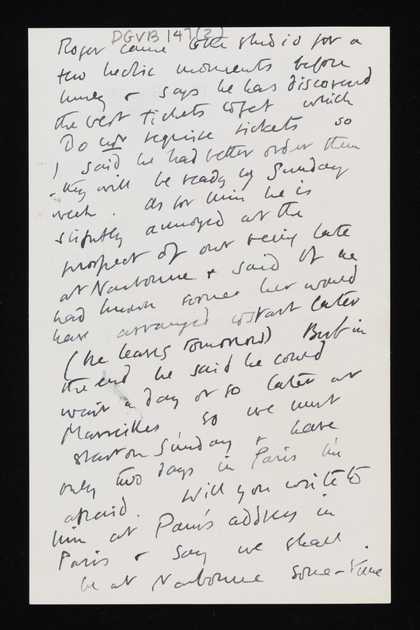 DGVB 147(2)
Roger came to the studio for a
two hectic moments before
lunch & says he has discovered
the best tickets to get which
Do not require tickets so
I said he had better order them
- they will be ready by Sunday
week. As for him he is
slightly annoyed at the
prospect of our being late
at Narbonne & said if he
had known sooner he would
have arranged to start later
(he leaves tomorrow) But in
the end he said he could
wait a day or so later at
Marseilles so we must
start on Sunday & have
only two days in Paris I'm
afraid. Will you write to
him at Pam's address in
Paris & say we shall
be at Narbonne some-time